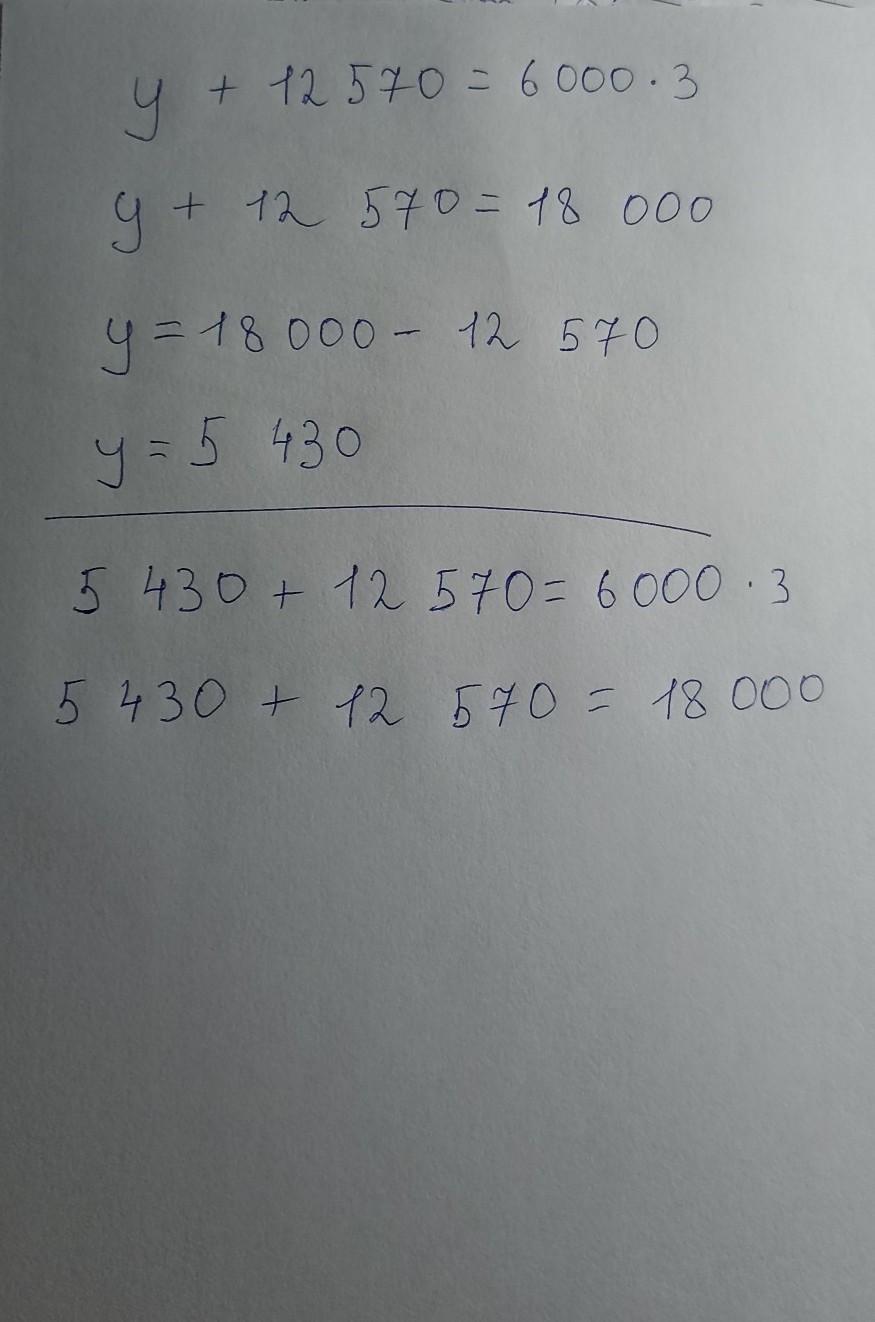 y + 12 570 = 6 000 · 3
y + 12 570 = 18 000
y = 18 000 - 12 570
y = 5 430
5 430 + 12 570 = 6 000 · 3
5 430 + 12 570 = 18 000